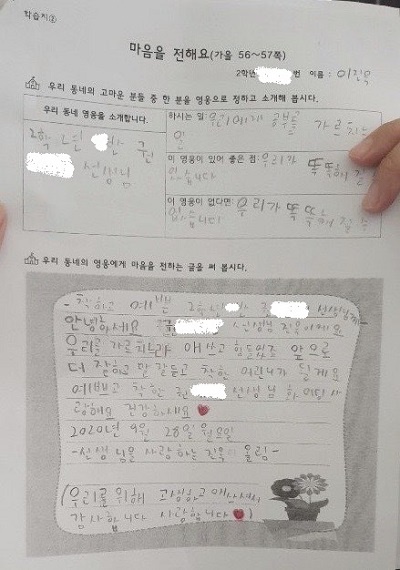 학습지②
마음을 전해요(가을 56~57쪽)
2학년 번 이름 : 이진욱
우리 동네의 고마운 분들 중 한 분을 영웅으로 정하고 소개해 봅시다.
우리 동네 영웅을 소개합니다.
2학년 반 권
선생님
하시는 일: 우리에게 공부를 가르치는
일
이 영웅이 있어 좋은 점: 우리가 똑똑해질
수 있습니다
이 영웅이 없다면: 우리가 똑똑해질 수
없습니다
우리 동네의 영웅에게 마음을 전하는 글을 써 봅시다.
-착하고 예쁜 2학년 반 권 선생님께-
안녕하세요 선생님 진욱이에요
우리를 가르치느라 애쓰고 힘들었죠 앞으로
더 잘하고 말 잘듣고 착한 어린이가 될게요
예쁘고 착한 권 선생님 화이팅 사
랑해요 건강하세요
2020년 9월 28일 월요일
-선생님을 사랑하는 진욱이 올림-
(우리를 위해 고생하고 애쓰셔서
감사합니다 사랑합니다)